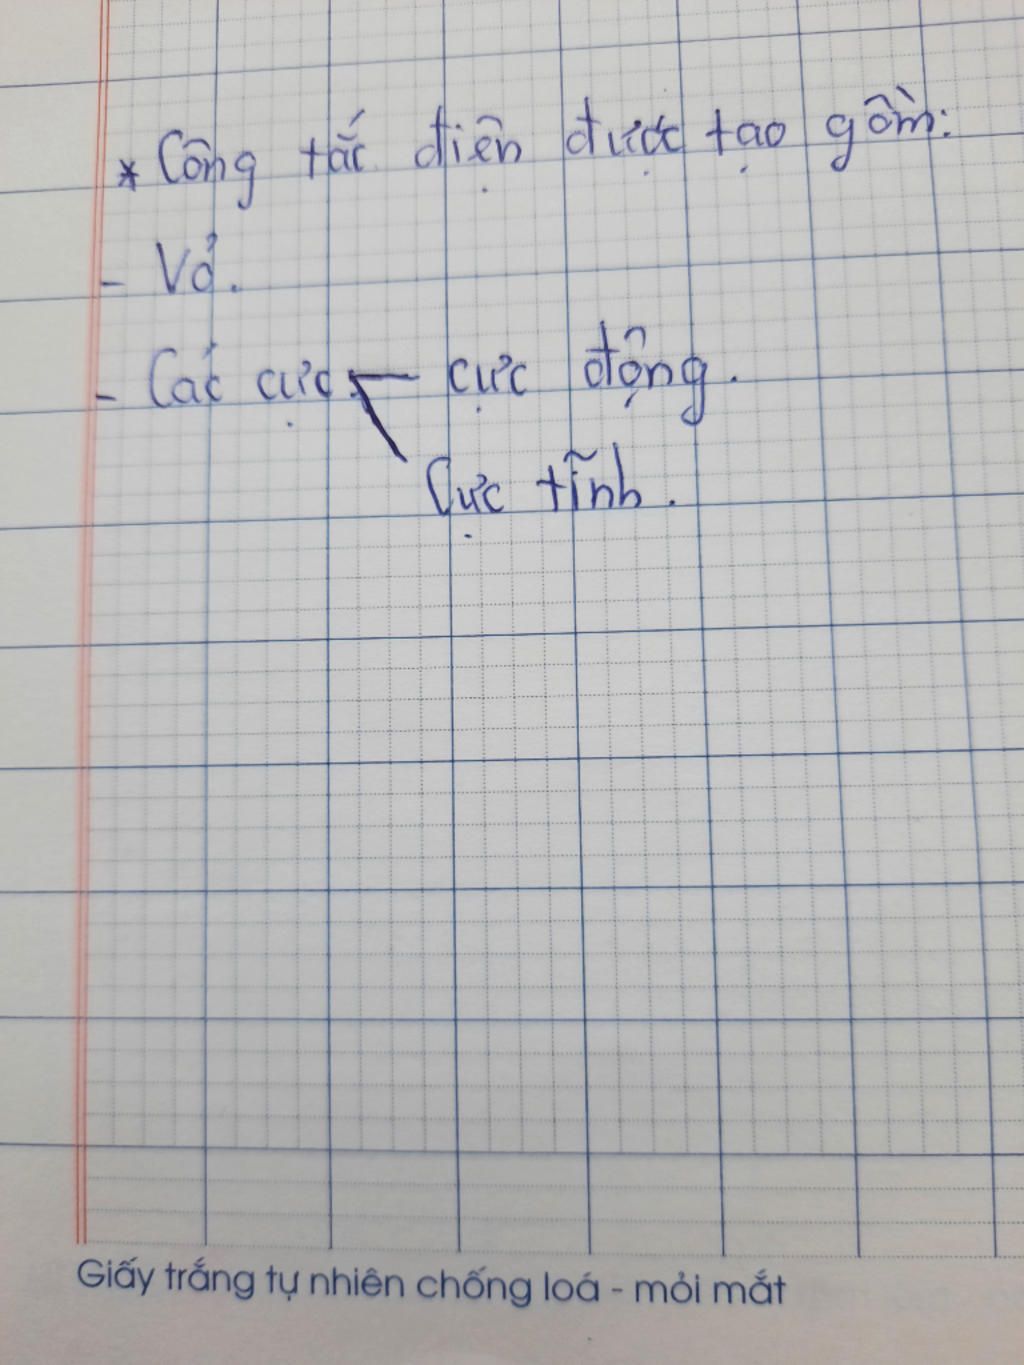 * Công tắc điện được tạo gồm:
- Vỏ.
- Các cực cực động.
Cực tĩnh.
Giấy trắng tự nhiên chống loá - mỏi mắt